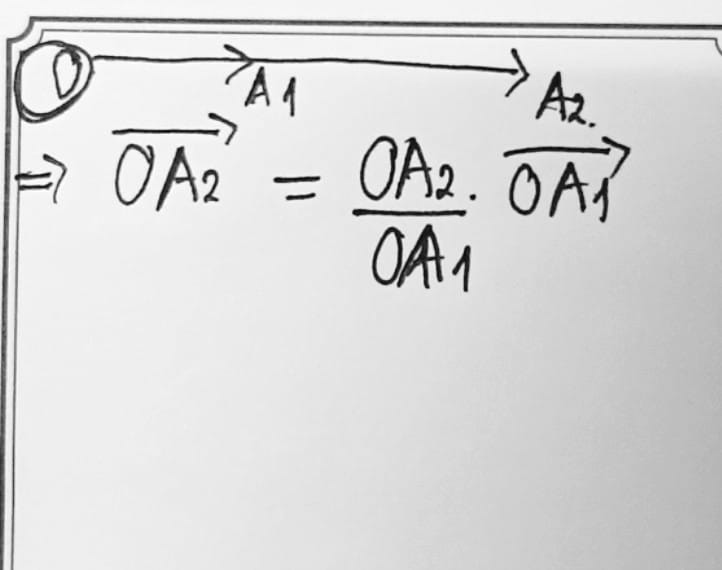 O A1 A2.
=> OA2 = OA2 / OA1 . OA1